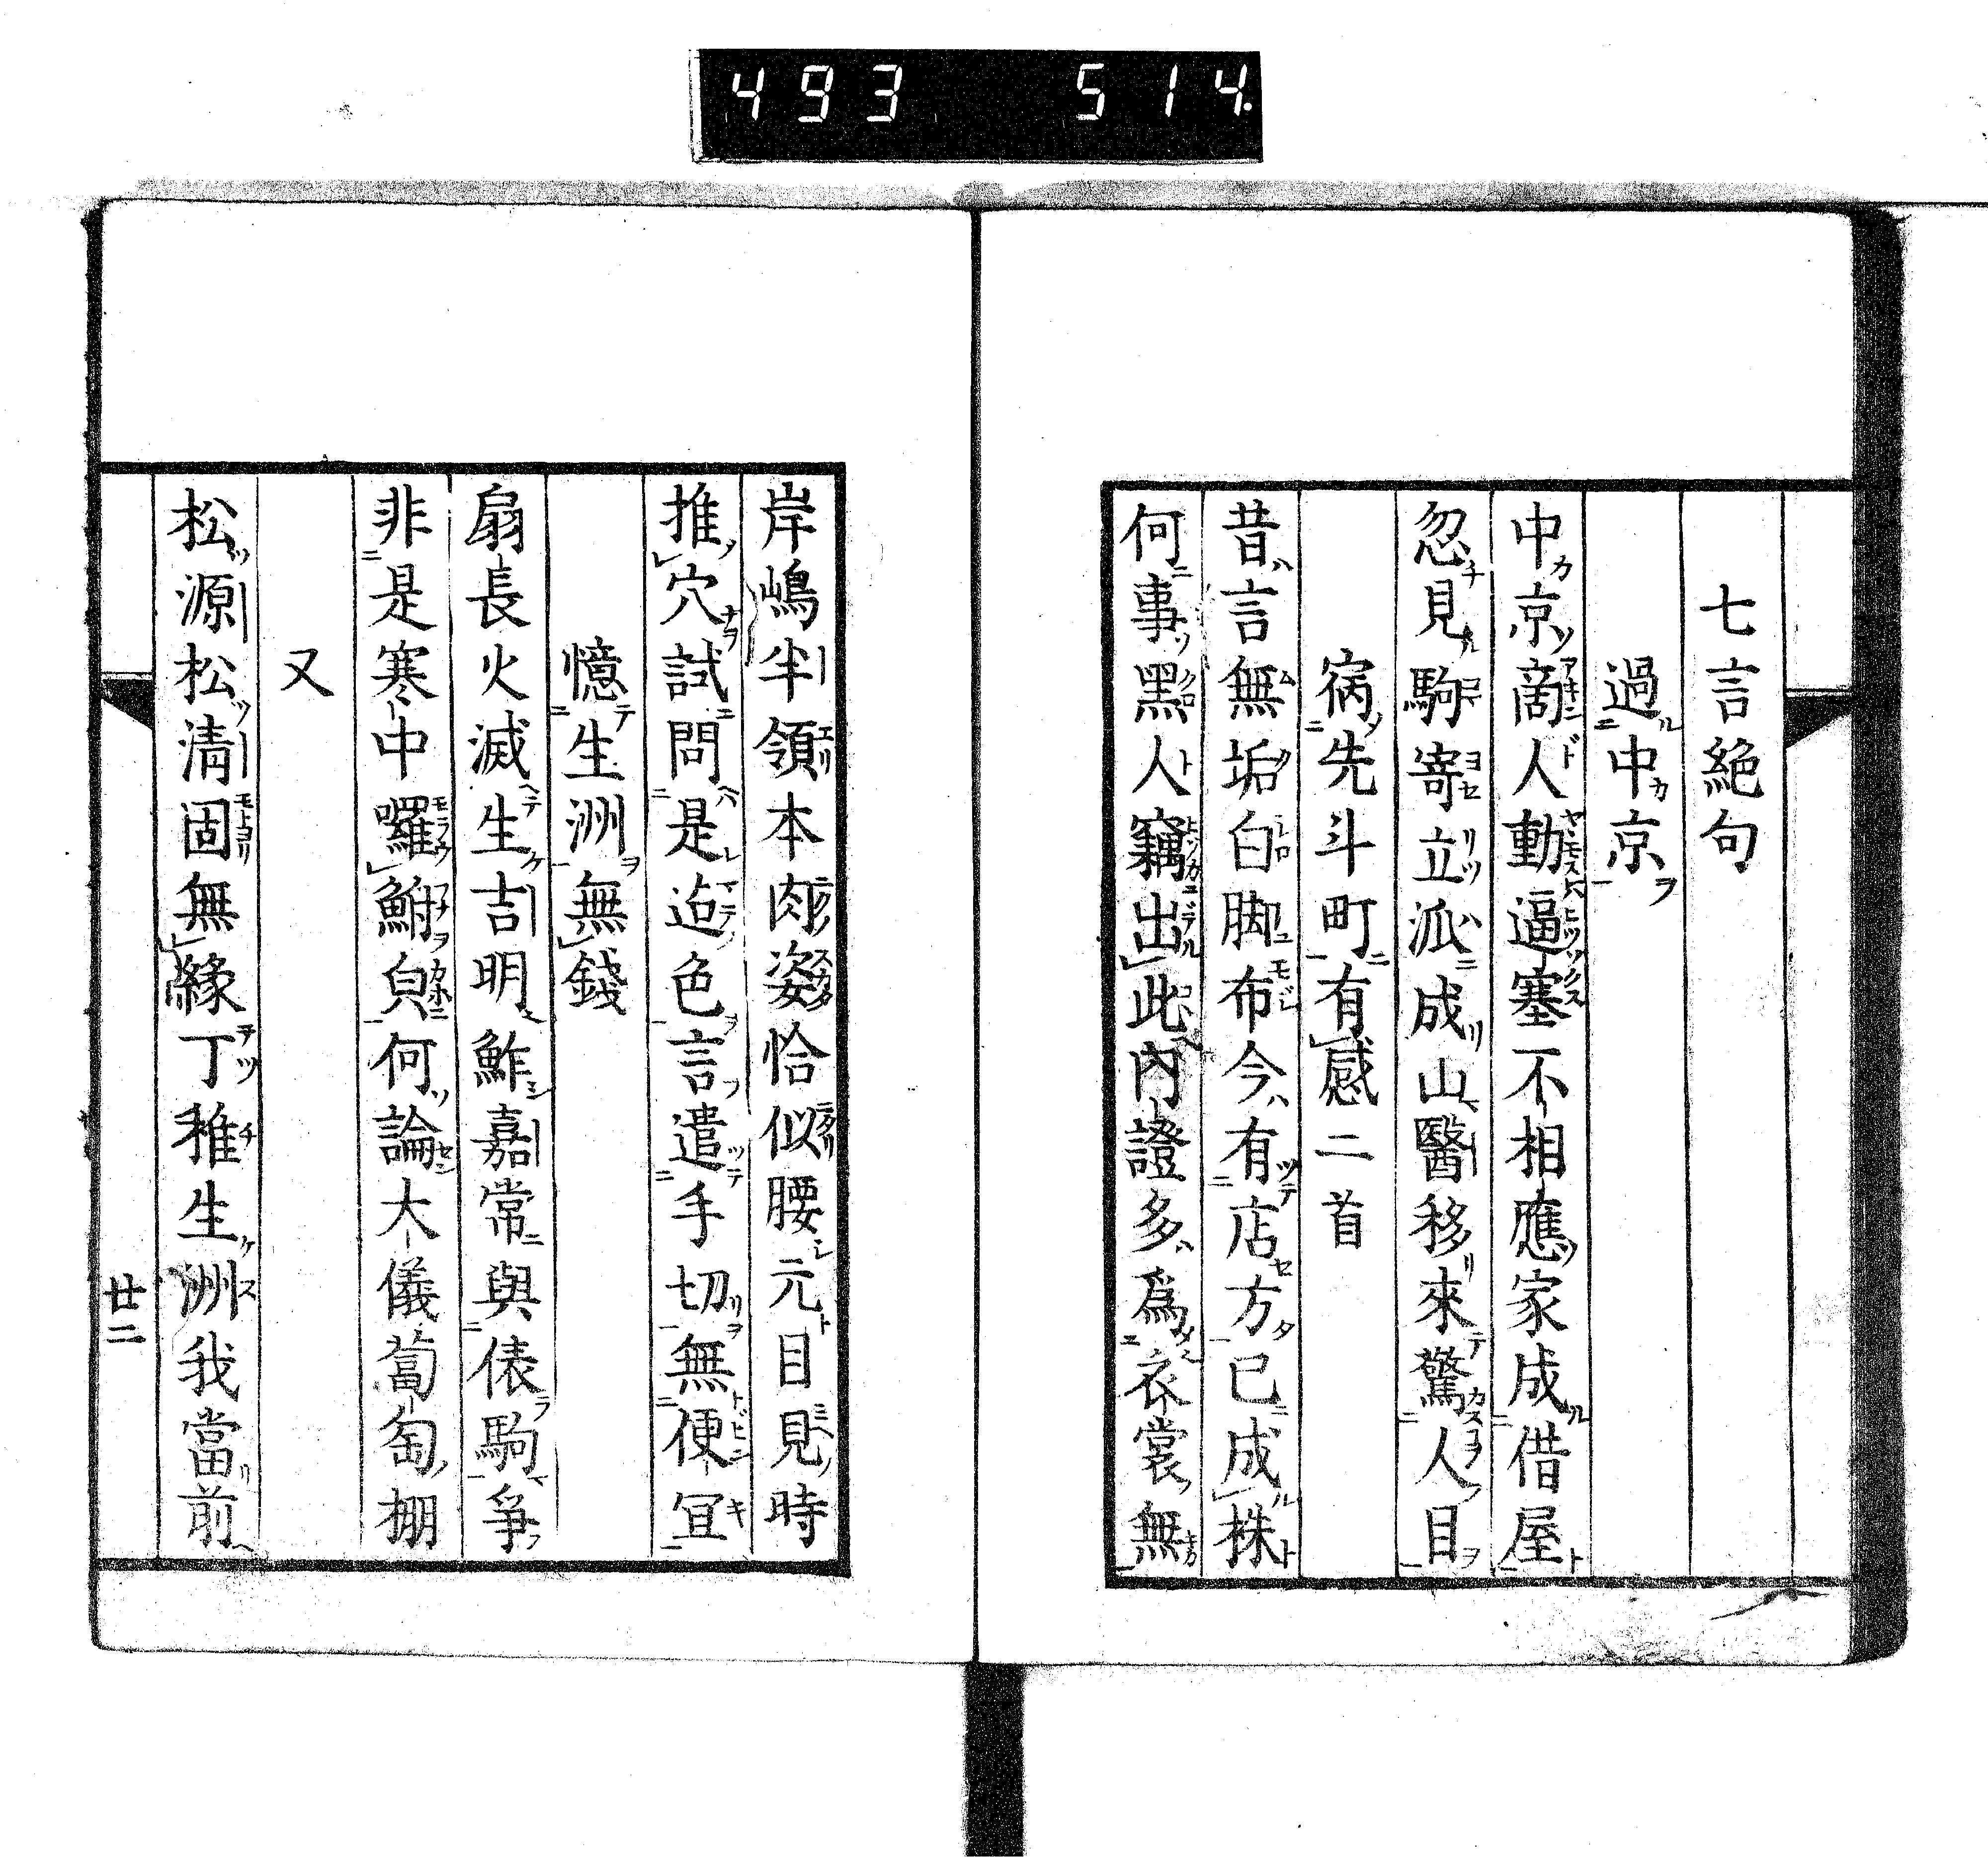 493 514.
七言絶句
過中京
中京商人動逼塞不相應家成借屋
忽見駒寄立泒成山醫移來驚人目
病先斗町有感二首
昔言無垢白脚布今有店方已成株
何事黑人竊出此內證多爲衣裳無
岸嶋半領本肉姿恰似腰元目見時
推穴試問是迠色言遣手切無便宜
憶生洲無錢
扇長火滅生吉明鮓嘉常與俵駒爭
非是寒中囉鮒皃何論大儀蔔萄棚
又
松源松淸固無緣丁稚生洲我當前
廿二